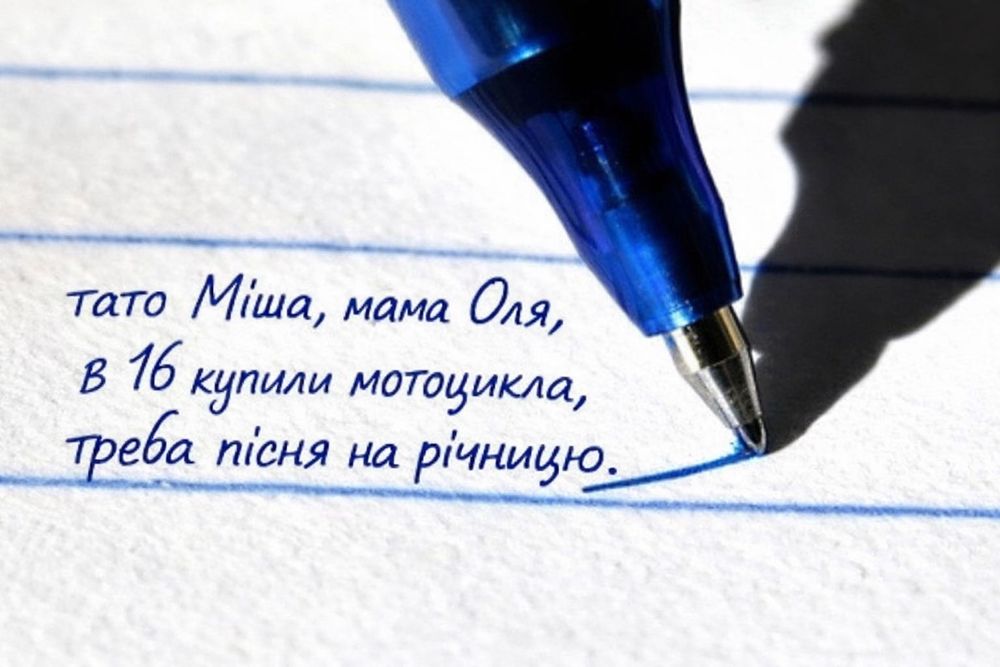 тато Міша, мама Оля,
в 16 купили мотоцикла,
треба пісня на річницю.